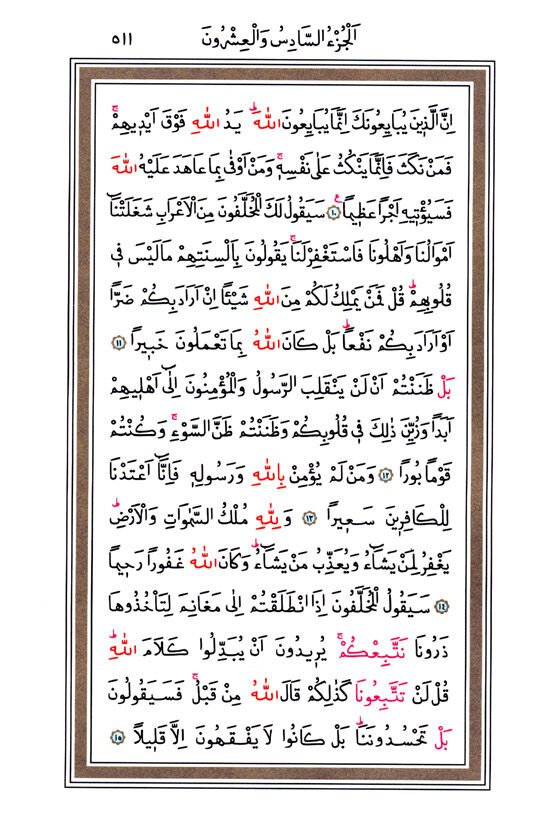 اَلْجُزْءُ السَّادِسُ وَالْعِشْرُونَ ٥١١
اِنَّ الَّذِينَ يُبَايِعُونَكَ اِنَّمَا يُبَايِعُونَ اللّٰهَۜ يَدُ اللّٰهِ فَوْقَ اَيْدِيهِمْۚ
فَمَنْ نَكَثَ فَاِنَّمَا يَنْكُثُ عَلٰى نَفْسِهِۚ وَمَنْ اَوْفٰى بِمَا عَاهَدَ عَلَيْهُ اللّٰهَ
فَسَيُؤْتِيهِ اَجْرًا عَظِيمًا ۟ ﴿١٠﴾ سَيَقُولُ لَكَ الْمُخَلَّفُونَ مِنَ الْاَعْرَابِ شَغَلَتْنَٓا
اَمْوَالُنَا وَاَهْلُونَا فَاسْتَغْفِرْ لَنَاۚ يَقُولُونَ بِاَلْسِنَتِهِمْ مَا لَيْسَ فِي
قُلُوبِهِمْۜ قُلْ فَمَنْ يَمْلِكُ لَكُمْ مِنَ اللّٰهِ شَيْـًٔا اِنْ اَرَادَ بِكُمْ ضَرًّا
اَوْ اَرَادَ بِكُمْ نَفْعًاۜ بَلْ كَانَ اللّٰهُ بِمَا تَعْمَلُونَ خَبِيرًا ﴿١١﴾
بَلْ ظَنَنْتُمْ اَنْ لَنْ يَنْقَلِبَ الرَّسُولُ وَالْمُؤْمِنُونَ اِلٰٓى اَهْلِيهِمْ
اَبَدًا وَزُيِّنَ ذٰلِكَ فِي قُلُوبِكُمْ وَظَنَنْتُمْ ظَنَّ السَّوْءِۚ وَكُنْتُمْ
قَوْمًا بُورًا ﴿١٢﴾ وَمَنْ لَمْ يُؤْمِنْ بِاللّٰهِ وَرَسُولِهِ فَاِنَّٓا اَعْتَدْنَا
لِلْكَافِرِينَ سَعِيرًا ﴿١٣﴾ وَلِلّٰهِ مُلْكُ السَّمٰوَاتِ وَالْاَرْضِۜ
يَغْفِرُ لِمَنْ يَشَٓاءُ وَيُعَذِّبُ مَنْ يَشَٓاءُۜ وَكَانَ اللّٰهُ غَفُورًا رَحِيمًا
﴿١٤﴾ سَيَقُولُ الْمُخَلَّفُونَ اِذَا انْطَلَقْتُمْ اِلٰى مَغَانِمَ لِتَأْخُذُوهَا
ذَرُونَا نَتَّبِعْكُمْۚ يُرِيدُونَ اَنْ يُبَدِّلُوا كَلَامَ اللّٰهِۜ
قُلْ لَنْ تَتَّبِعُونَا كَذٰلِكُمْ قَالَ اللّٰهُ مِنْ قَبْلُۚ فَسَيَقُولُونَ
بَلْ تَحْسُدُونَنَاۜ بَلْ كَانُوا لَا يَفْقَهُونَ اِلَّا قَلِيلًا ﴿١٥﴾